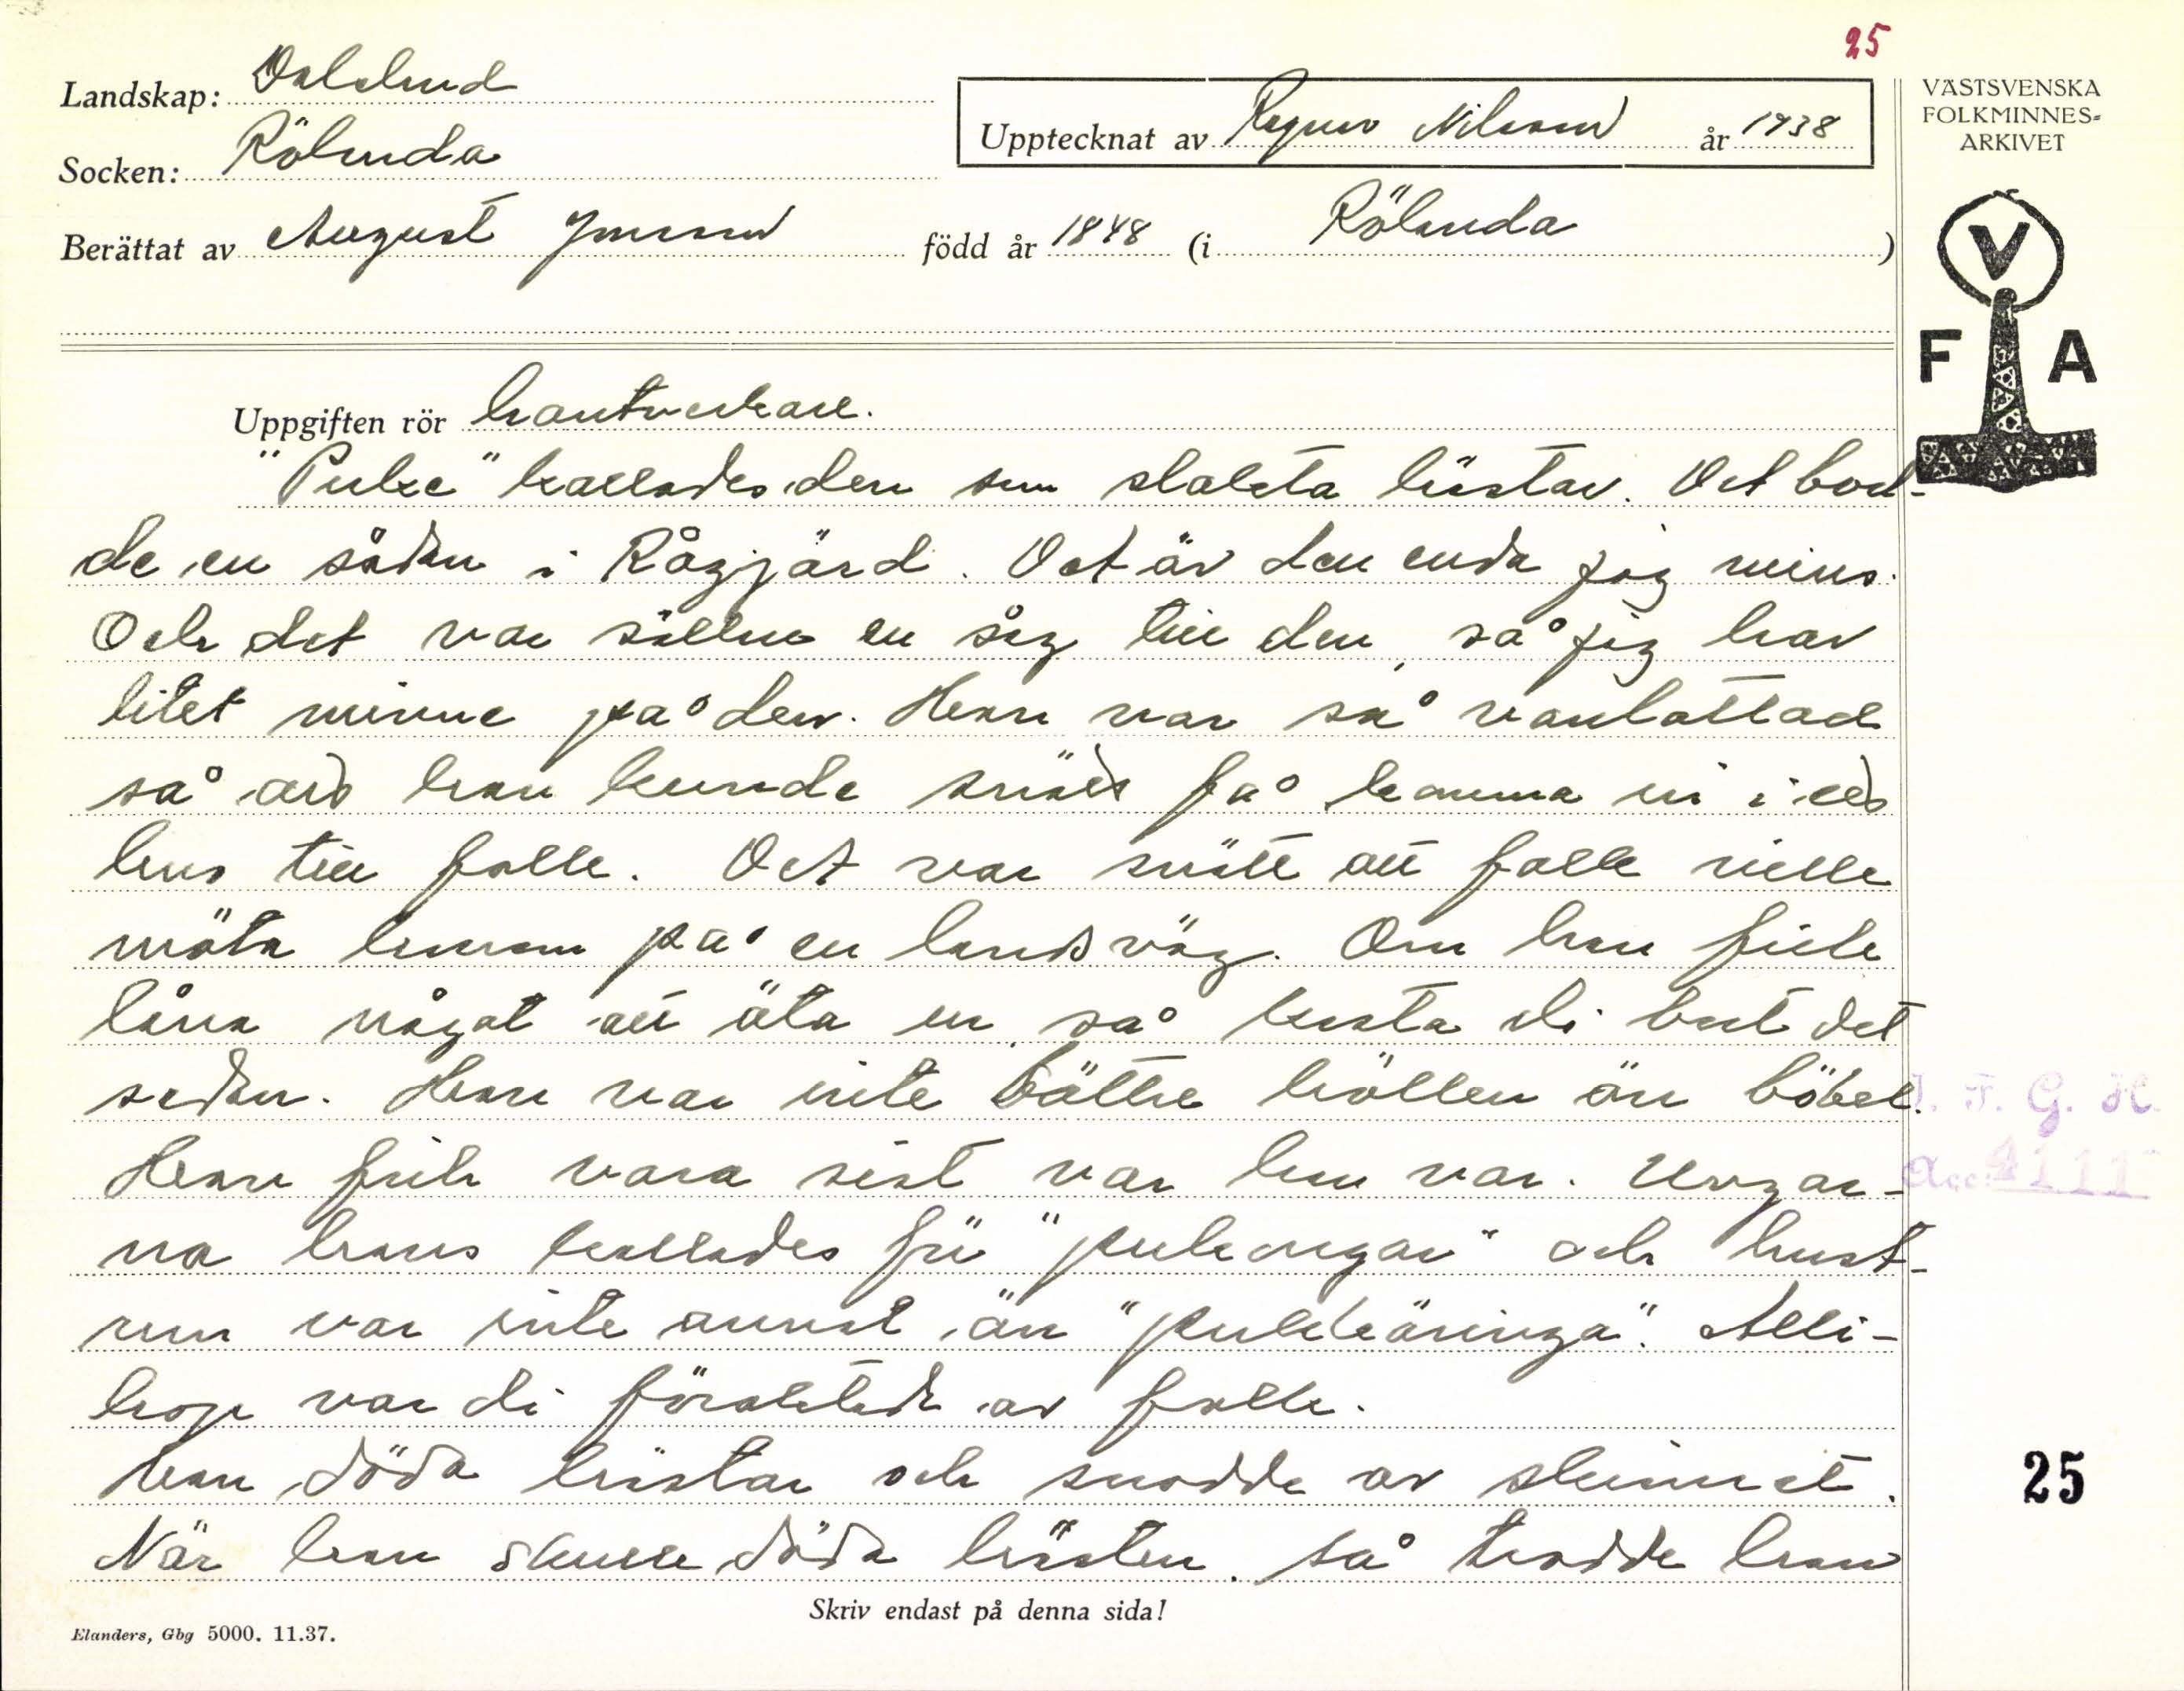 25
Landskap: Dalsland
Socken: Rölanda
Upptecknat av Ragnar Nilsson år 1938
Berättat av August Jonsson född år 1848 (i Rölanda)
VÄSTSVENSKA
FOLKMINNES=
ARKIVET
V
F A
Uppgiften rör hantverkare.
"Puke" kallades den som slakta hästar. Det bod-
de en sådan i Rågjärd. Det är den enda jag mins.
Och det var sällan en såg till den, så jag har
litet minne på den. Han var så vanlottad
så att han kunde knäds få komma in i ett
hus till folk. Det var knätt att folk ville
möta honom på en landsväg. Om han fick
låna något att äta ur så kasta di bort det
sedan. Han var inte bättre hållen än böbel.
Han fick vara sist var han var. Ungar-
na hans kallades för "pukungar" och hust-
run var inte annat än "pukkäringa". Alli-
hop var di föraktade av folk.
Han döda hästar och snodde av skinnet.
När han skulle döda hästen. så trodde han
I. F. G. H.
Acc. 4111
25
Skriv endast på denna sida!
Elanders, Gbg 5000. 11.37.